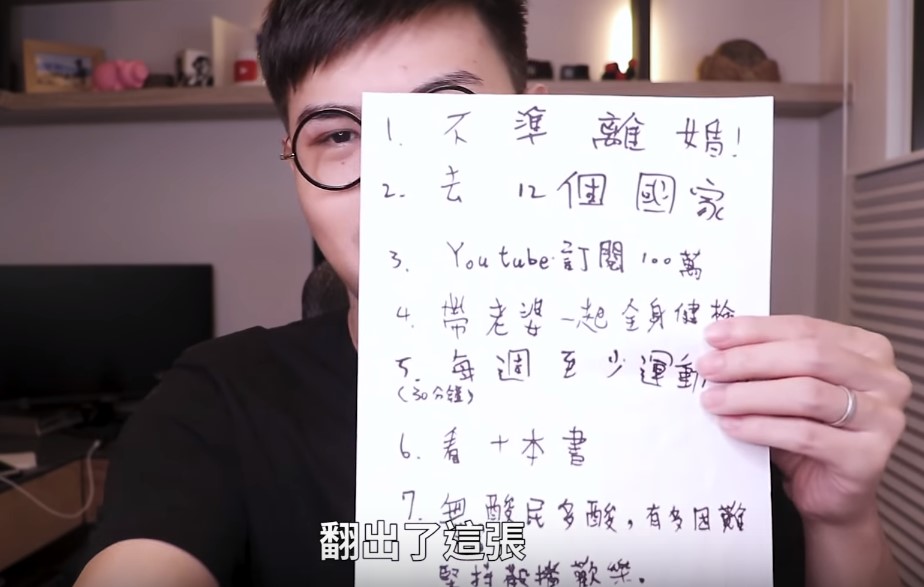 1. 不準離婚!
2. 去12個國家
3. Youtube訂閱100萬
4. 帶老婆一起全身健檢
5. 每週至少運動
(30分鐘)
6. 看十本書
7. 無 酸民多酸,有多困難
堅持散播歡樂.
翻出了這張